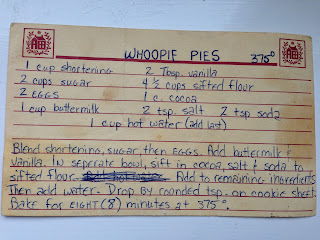 WHOOPIE PIES 375°
1 cup shortening 2 Tbsp. vanilla
2 cups sugar 4 1/2 cups sifted flour
2 EGGS 1 c. cocoa
1 cup buttermilk 2 tsp. salt 2 tsp soda
1 cup hot water (add last)
Blend shortening, sugar, then EGGS. Add buttermilk &
vanilla. IN seperate bowl, sift in cocoa, salt & soda to
sifted flour. Add to remaining ingredients
Then add water. Drop By rounded tsp. on cookie sheet.
Bake for EIGHT (8) minutes at 375°.